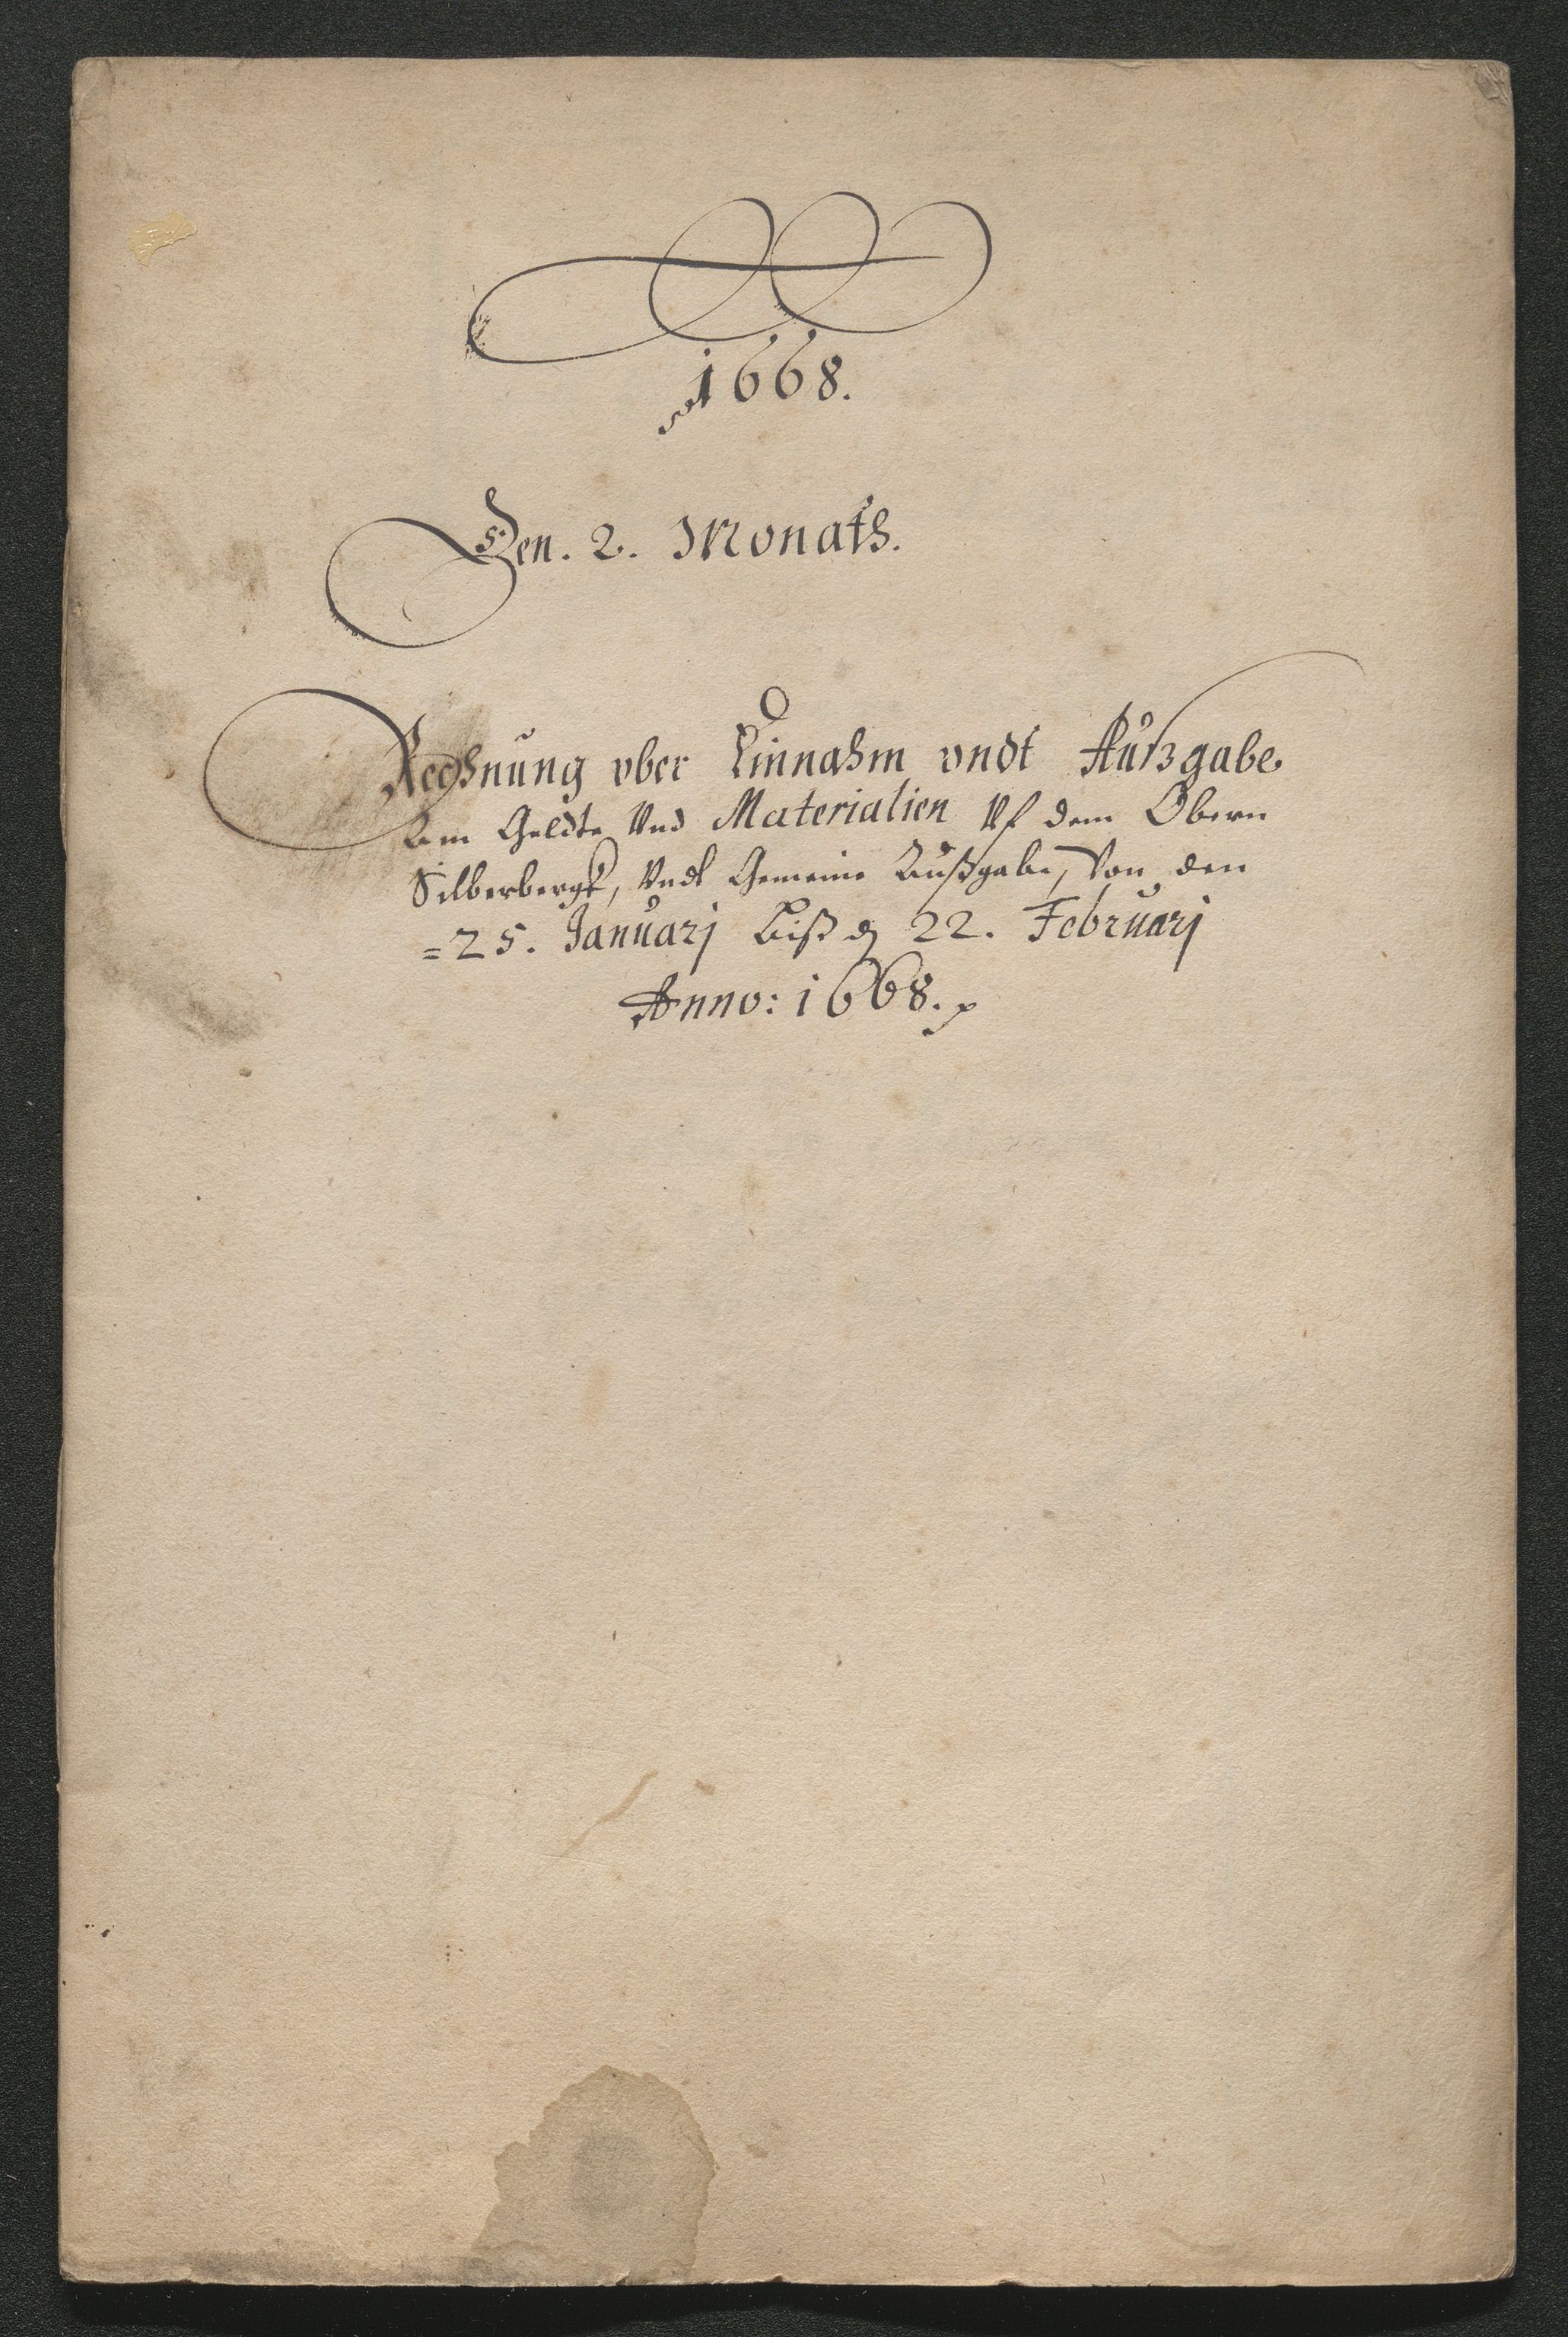 1668.
Den. 2. Monats.
Rechnung vber Einnahm vndt Außgabe
Am Geldte Vnd Materialien Vf dem Obern
Silberbergk, Vndt Gemeine Außgabe, Von den
=25. Januarj Biß d 22. Februarj
Anno: 1668.